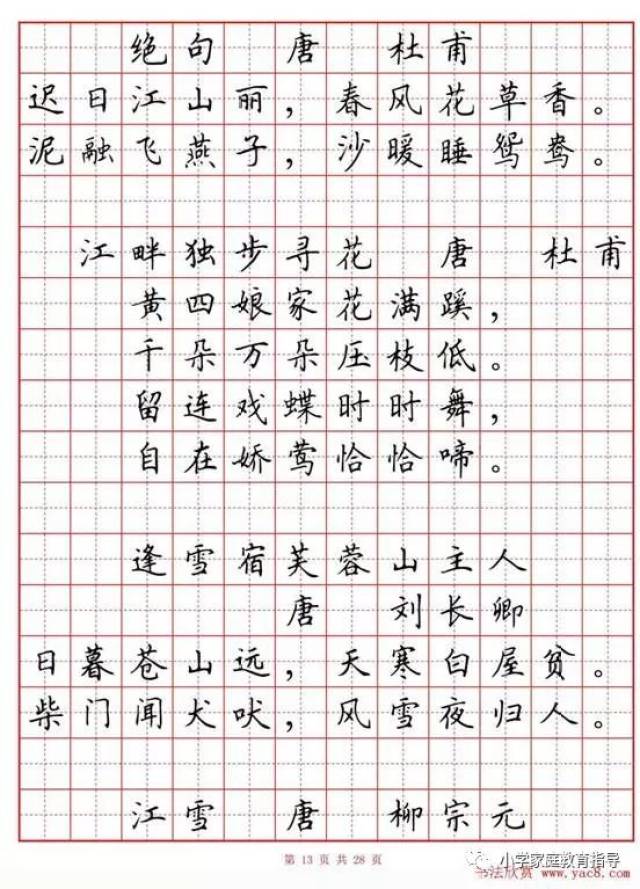 绝句 唐 杜甫
迟日江山丽，春风花草香。
泥融飞燕子，沙暖睡鸳鸯。
江畔独步寻花 唐 杜甫
黄四娘家花满蹊，
千朵万朵压枝低。
留连戏蝶时时舞，
自在娇莺恰恰啼。
逢雪宿芙蓉山主人
唐 刘长卿
日暮苍山远，天寒白屋贫。
柴门闻犬吠，风雪夜归人。
江雪 唐 柳宗元
第 13 页 共 28 页
小学家庭教育指导
书法欣赏 www.yac8.com